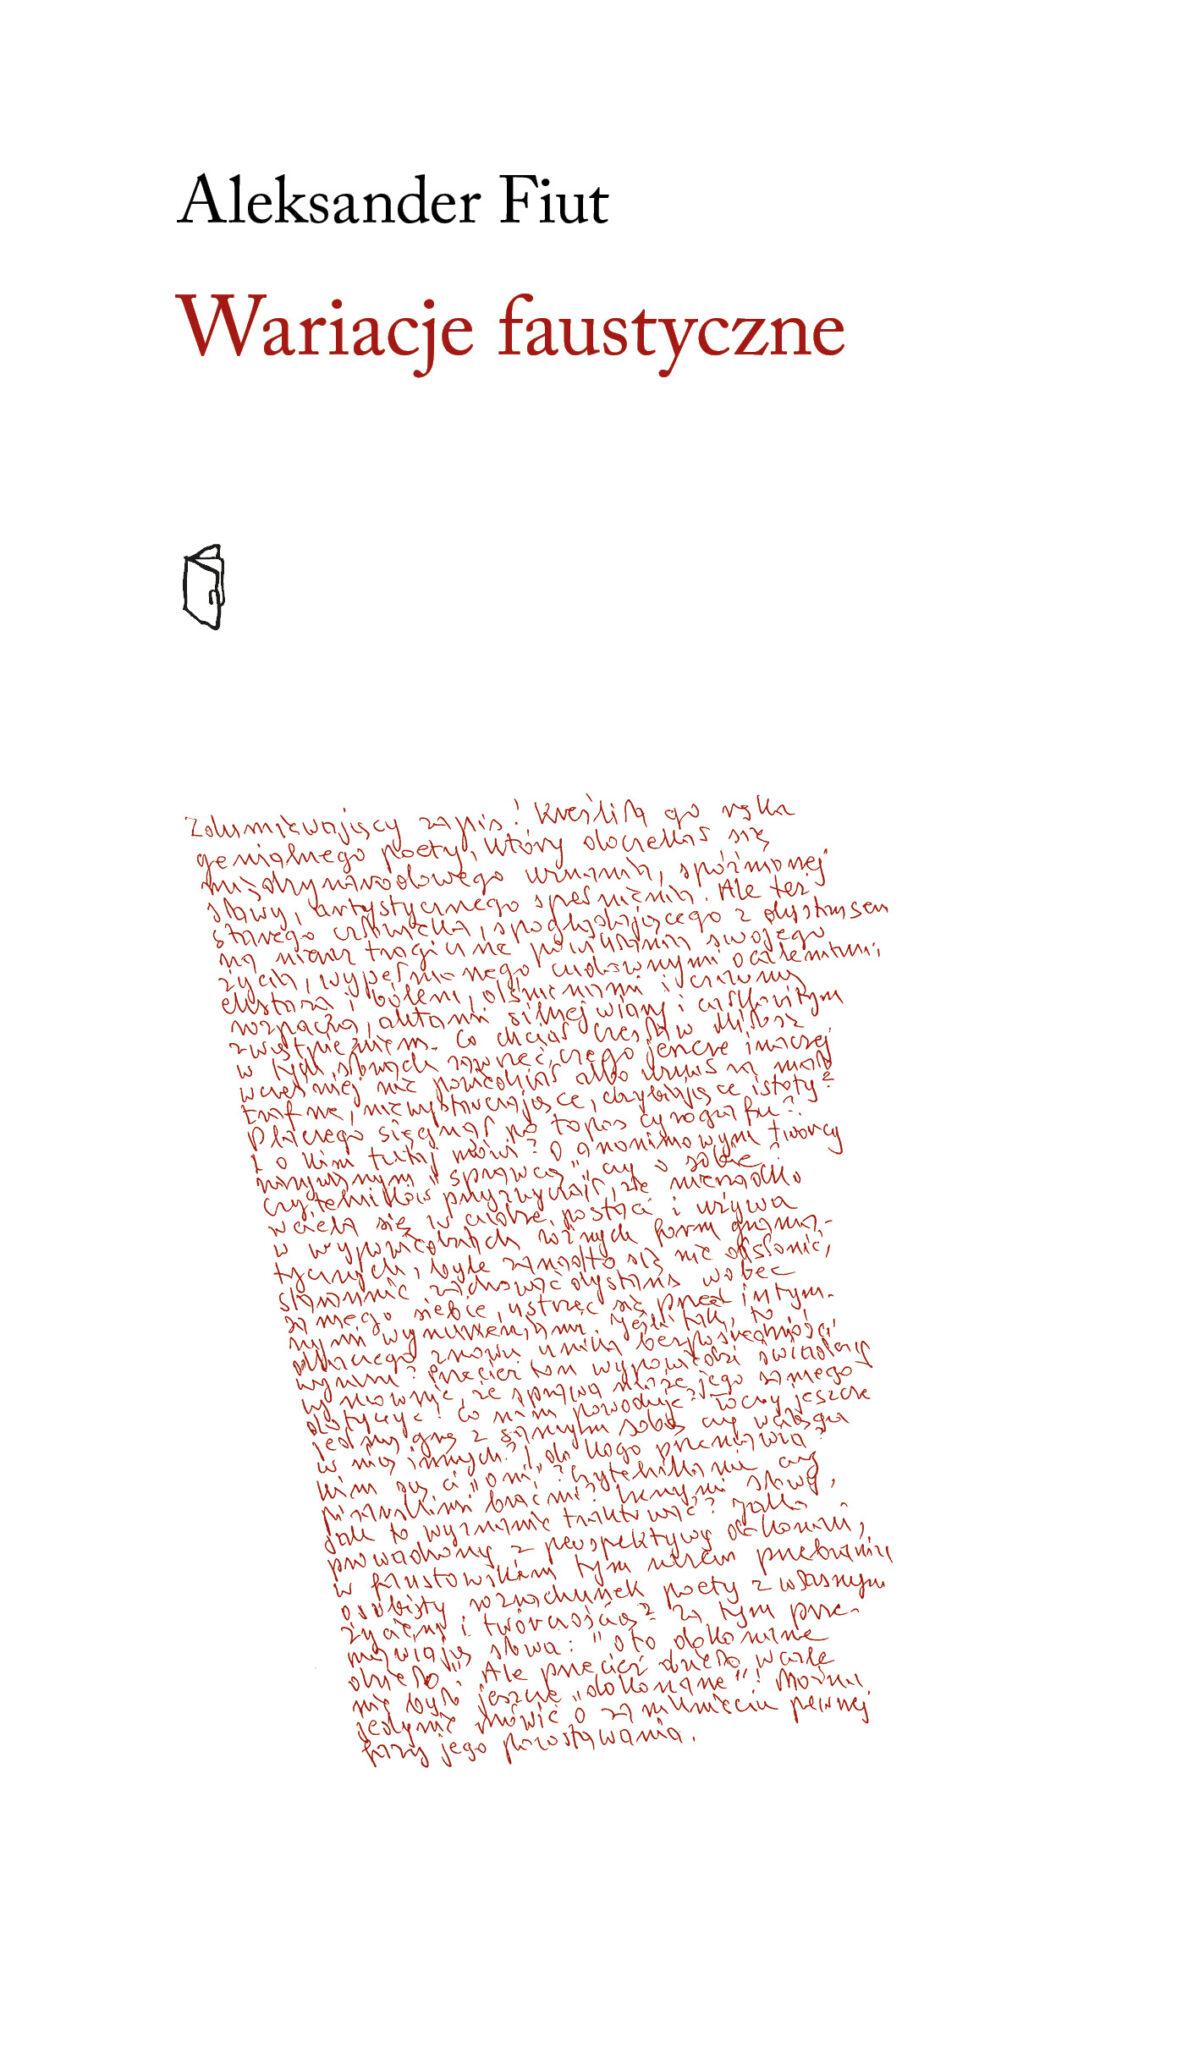 Aleksander Fiut
Wariacje faustyczne
Zdumiewający zapis! Kreśliła go ręka
genialnego poety, który doczekał się
międzynarodowego uznania, spóźnionej
sławy, artystycznego spełnienia. Ale też
starego człowieka, spoglądającego z dystansem
na nieraz tragiczne powikłania swojego
życia, wypełnionego cudownymi ocaleniami,
ekstazą i bólem, olśnieniami i czarną
rozpaczą, aktami silnej wiary i całkowitym
zwątpieniem. Co chciał Czesław Miłosz
w tych słowach zawrzeć, czego jeszcze inaczej
wcześniej nie powiedział albo uznał za mało
trafne, niewystarczające, chybiające istoty?
Dlaczego sięgnął po topos cyrografu?
I o kim tutaj mówi? O anonimowym twórcy
nazywanym „sprawcą" czy o sobie?
Czytelników przyzwyczaił, że nierzadko
wciela się w cudze postaci i używa
w wypowiedziach różnych form grama-
tycznych, byle zanadto się nie odsłonić,
starannie zachować dystans wobec
samego siebie, ustrzec się przed intym-
nymi wynurzeniami. Jeśli tak, to
dlaczego znowu unika bezpośredniości
wyznań? Przecież ton wypowiedzi świadczy
wymownie, że sprawa może jego samego
dotyczyć! Co nim powoduje? Toczy jeszcze
jedną grę z samym sobą czy wciąga
w nią innych? I do kogo przemawia?
Kim są ci „oni"? Czytelnikami czy
pisarskimi braćmi? Innymi słowy,
jak to wyznanie traktować? Jako
prowadzony z perspektywy dokonań,
w faustowskim tym razem przebraniu
osobisty rozrachunek poety z własnym
życiem i twórczością? Za tym prze-
mawiają słowa: „Oto dokonane
dzieło". Ale przecież dzieło wcale
nie było jeszcze „dokonane"! Można
jedynie mówić o zamknięciu pewnej
fazy jego powstawania.